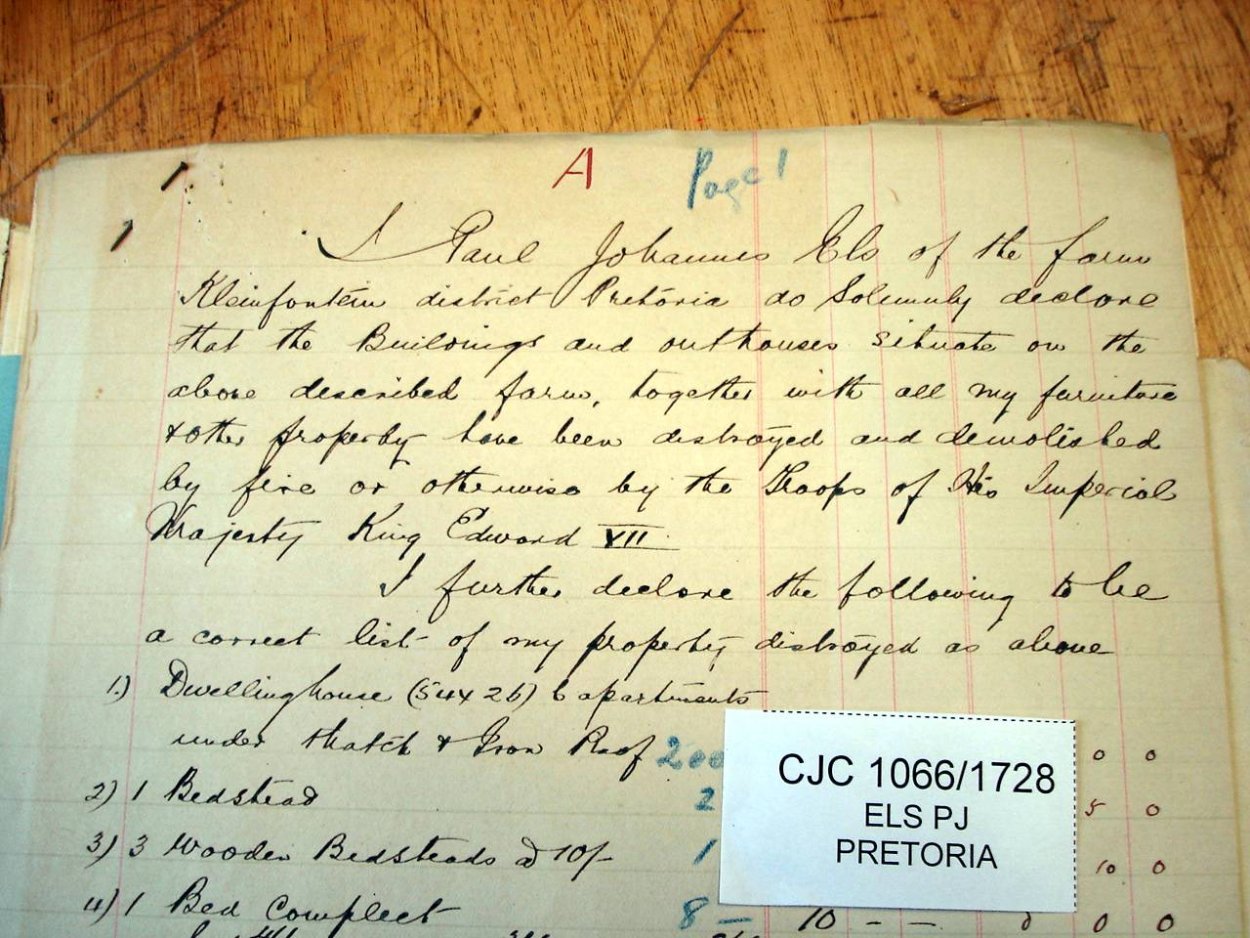 A Page 1
I Paul Johannes Els of the farm
Kleinfontein district Pretoria do Solemnly declare
that the Buildings and outhouses situate on the
above described farm, together with all my furniture
& other property have been distroyed and demolished
by fire or otherwise by the Troops of His Imperial
Majesty King Edward VII
I further declare the following to be
a correct list of my property distroyed as above
1.) Dwellinghouse (54 x 26) 6 apartments
under thatch & Iron Roof 200 0 0
2) 1 Bedstead 2 5 0
3) 3 Wooden Bedsteads @ 10/- 1 10 0
4) 1 Bed Compleet 8 — 10 - - 0 0
CJC 1066/1728
ELS PJ
PRETORIA